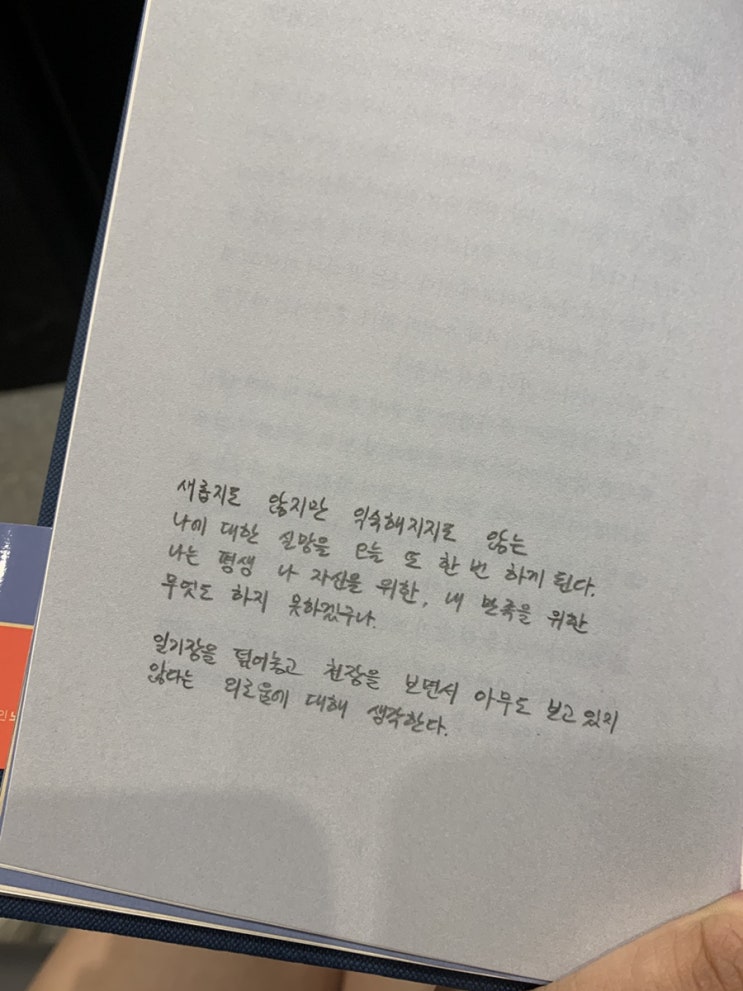 새롭지도 않지만 익숙해지지도 않는
나에 대한 실망을 오늘 또 한 번 하게 된다.
나는 평생 나 자신을 위한, 내 만족을 위한
무엇도 하지 못하겠구나.
일기장을 덮어놓고 천장을 보면서 아무도 보고 있지
않다는 외로움에 대해 생각한다.